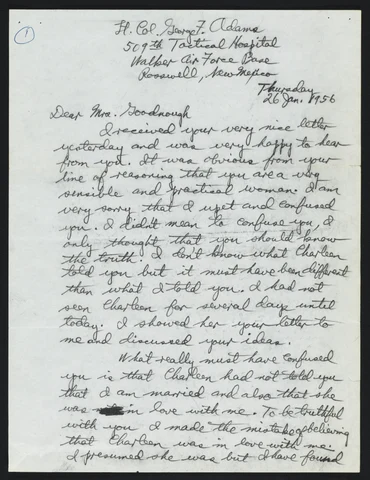 1
Lt. Col. George F. Adams
509th Tactical Hospital
Walker Air Force Base
Rosswell, New Mexico
Thursday
26 Jan. 1956
Dear Mrs. Goodnough
I received your very nice letter
yesterday and was very happy to hear
from you. It was obvious from your
line of reasoning that you are a very
sensible and practical woman. I am
very sorry that I upset and confused
you. I didn't mean to confuse you, I
only thought that you should know
the truth. I don't know what Charleen
told you but it must have been different
than what I told you. I had not
seen Charleen for several days until
today. I showed her your letter to
me and discussed your ideas.
What really must have confused
you is that Charleen had not told you
that I am married and also that she
was in love with me. To be truthful
with you I made the mistake of believing
that Charleen was in love with me.
I presumed she was but I have found